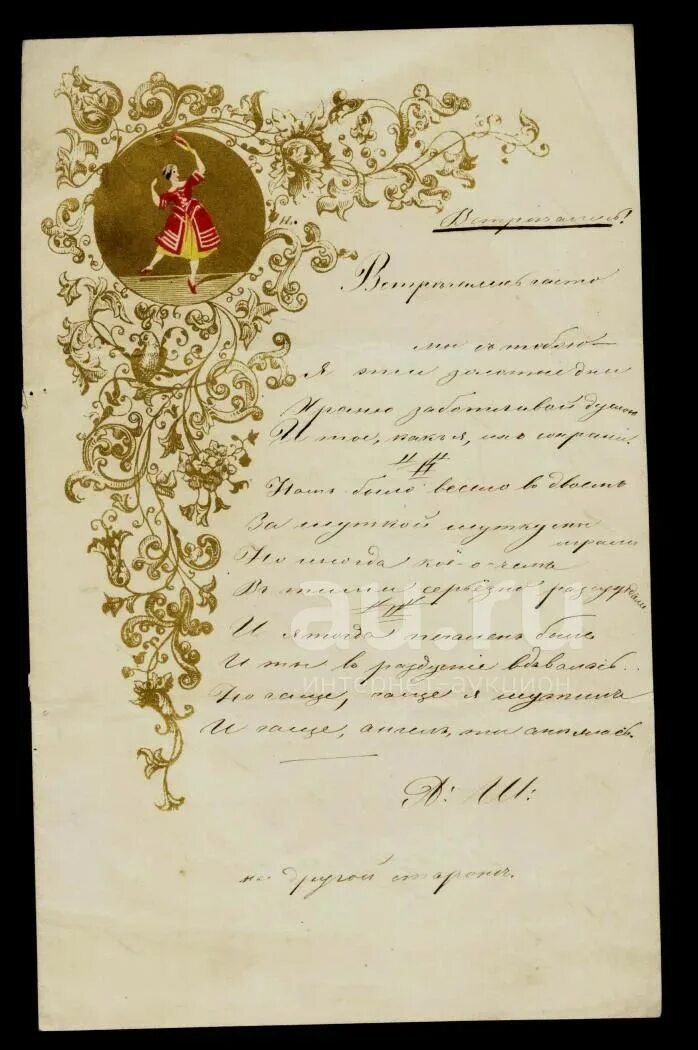 Встрѣчались!
Встрѣчались часто
мы съ тобою
Я эти золотые дни
Храню заботливой душою
И ты, какъ я, ихъ сохрани.
Намъ было весело вдвоемъ
За шуткой шутку мы
играли
Но иногда кой о чемъ
Въ тиши серьёзно разсуждали
И я тогда печаленъ былъ
И ты въ раздуміе вдавалась..
Но чаще, чаще я шутилъ
И чаще, ангелъ, ты смѣялась.
А: Ш:
на другой сторонѣ.
au.ru
интернет-аукцион